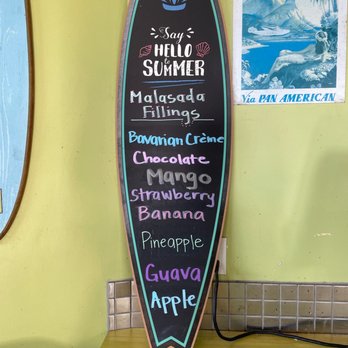 Say
HELLO
to
SUMMER
Malasada
Fillings
Bavarian Crème
Chocolate
Mango
Strawberry
Banana
Pineapple
Guava
Apple
Via PAN AMERICAN